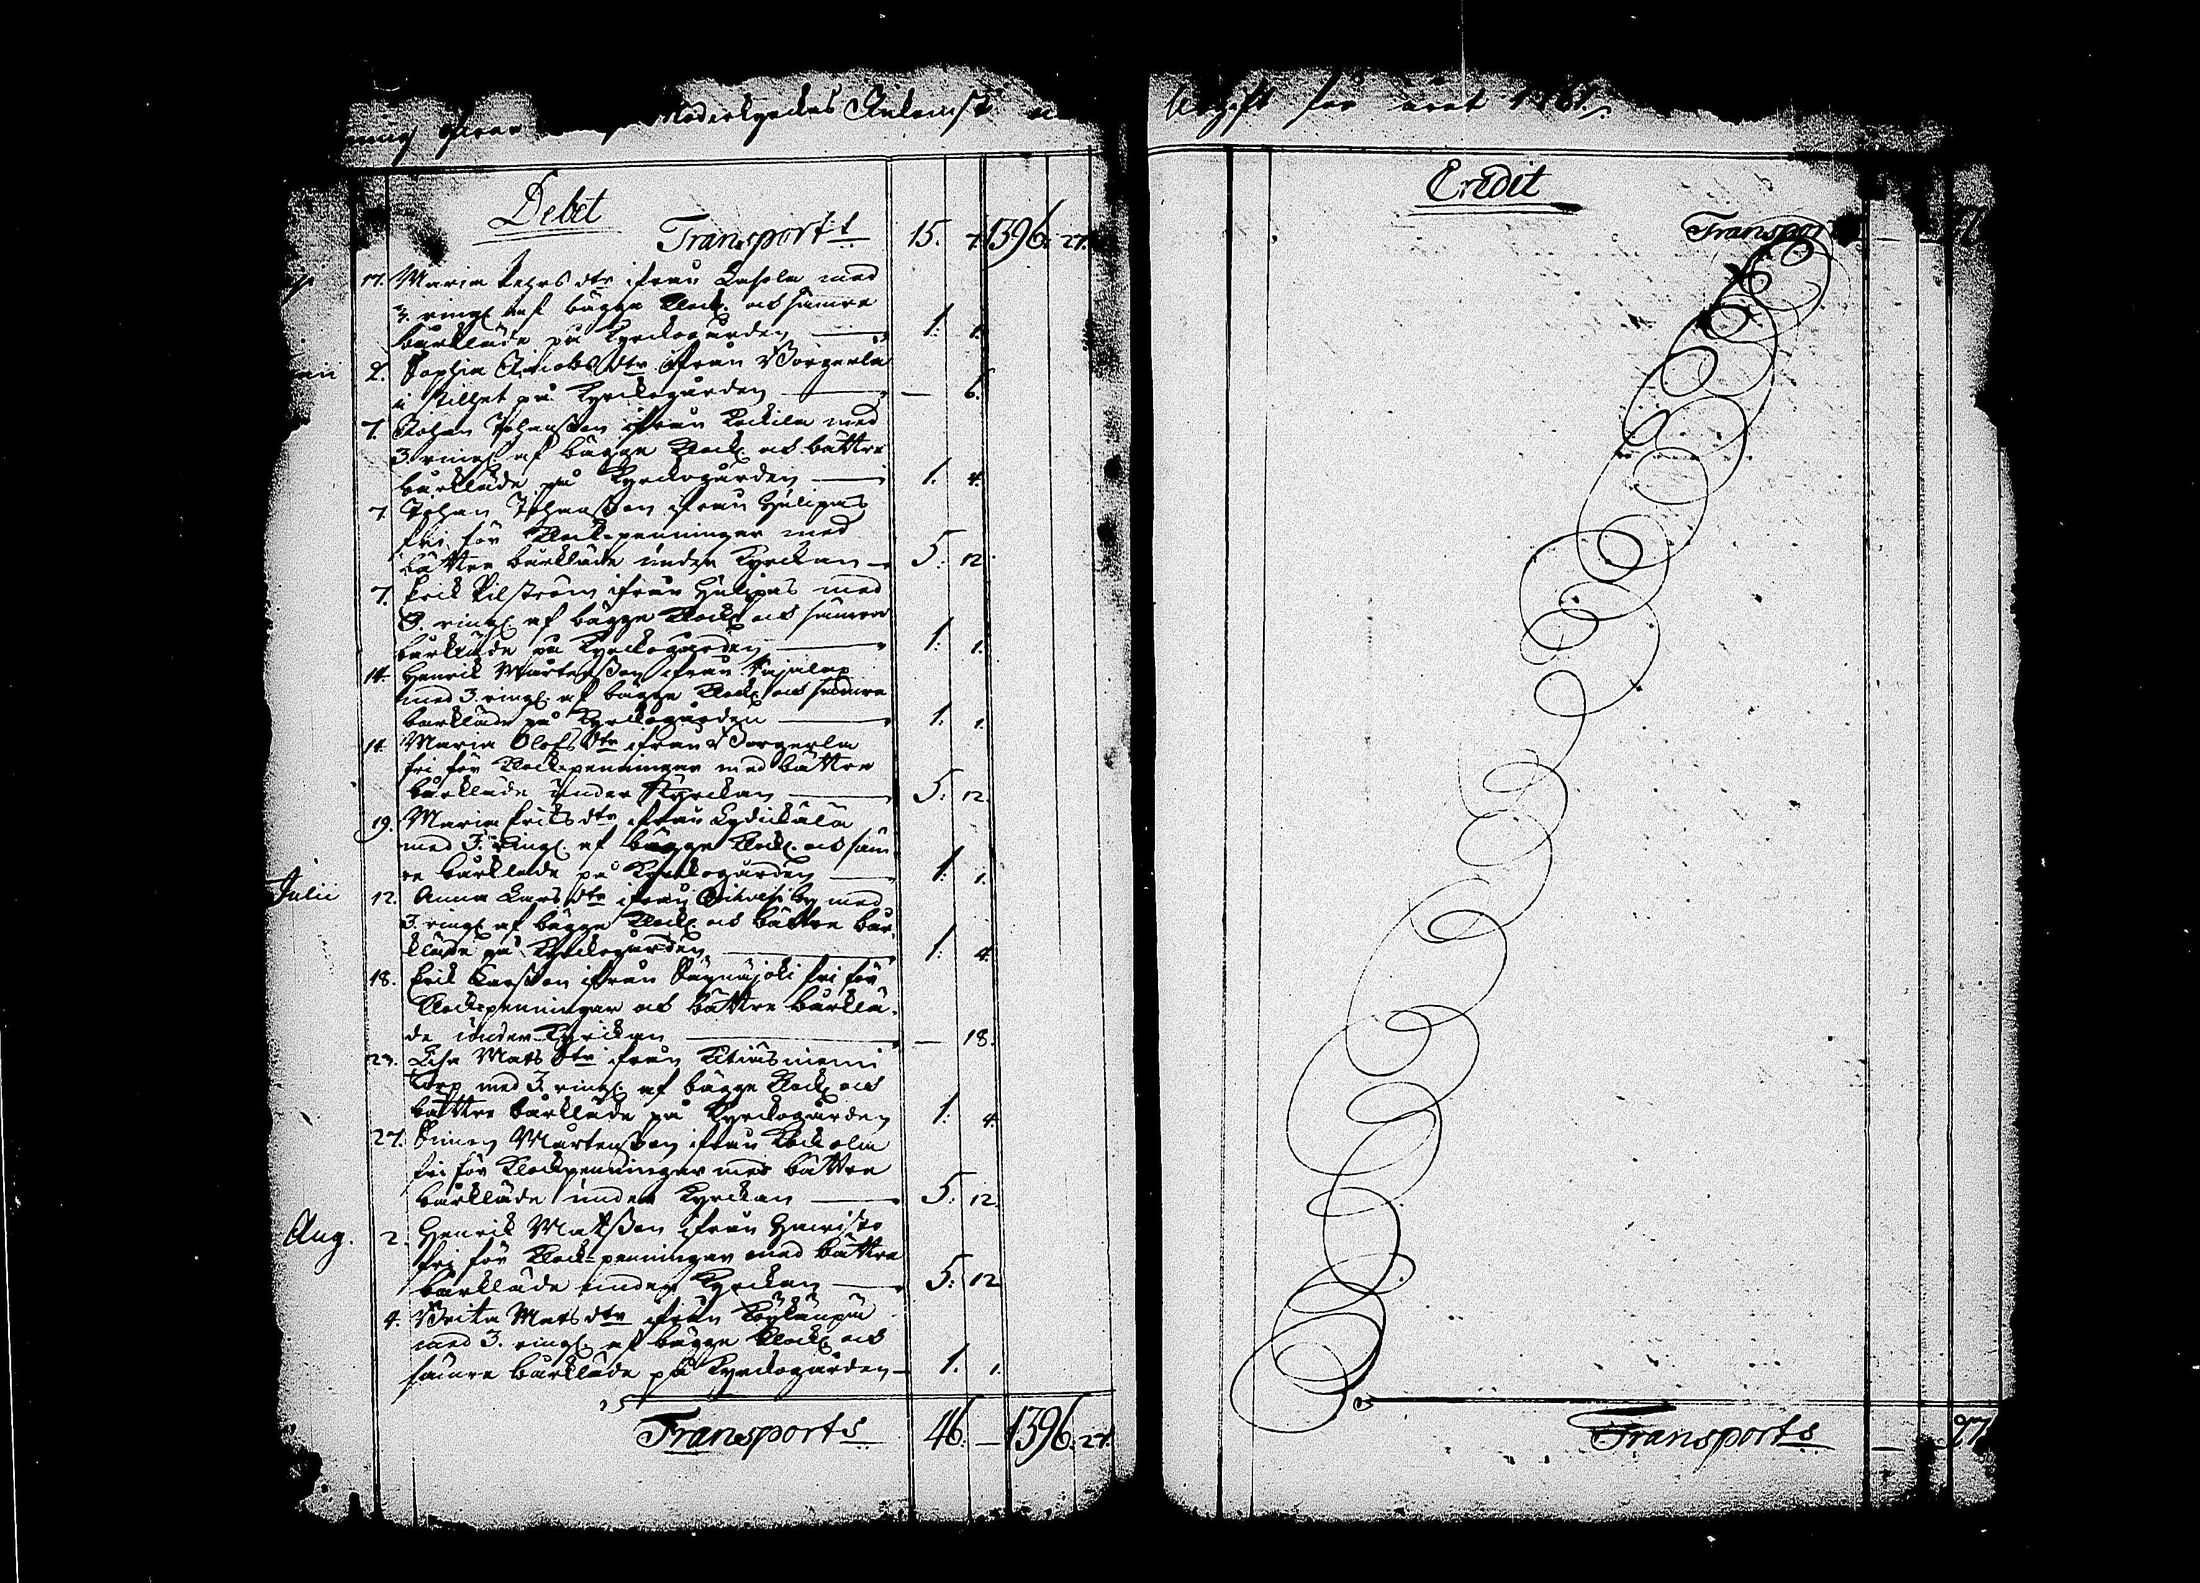 Moderkyrckas Inkomst
Utgift för året 1761.
Debet
Transport 15. 7. 1396. 27.
17. Maria Pehrs dtr ifrån med
3. ring. af bägge klock. och sämre
bårkläde på Kyrckogården 1. 1.
2. Sophia Jacobs dtr ifrån Borgerla
i stillhet på Kyrckogården — 6.
7. Johan Johansson ifrån med
3. ring. af bägge klock. och bättre
bårkläde på Kyrckogården 1. 4.
7. Johan Johansson ifrån Hulipas
fri för Klock-penningar med
bättre bårkläde under Kyrckan 5. 12.
7. Erik Pilström ifrån Hulipas med
3. ring. af bägge klock. och sämre
bårkläde på Kyrckogården 1. 1.
14. Henrik Mårtensson ifrån
med 3. ring. af bägge klock. och sämre
bårkläde på Kyrckogården 1. 1.
14. Maria Olofs dtr ifrån Borgerla
fri för Klock-penningar med bättre
bårkläde under Kyrckan 5. 12.
19. Maria Eriks dtr ifrån
med 3. ring. af bägge klock. och säm-
re bårkläde på Kyrckogården 1. 1.
Julii 12. Anna Lars dtr ifrån med
3. ring. af bägge klock. och bättre bår-
kläde på Kyrckogården 1. 4.
18. Erik Larsson ifrån fri för
Klockpenningar och bättre bårklä-
de under Kyrckan — 18.
23. Lisa Mats dtr ifrån
Torp med 3. ring. af bägge klock. och
bättre bårkläde på Kyrckogården 1. 4.
27. Simon Mårtensson ifrån
fri för Klockpenningar med bättre
bårkläde under Kyrckan 5. 12.
Aug. 2. Henrik Matsson ifrån
fri för Klock-penningar med bättre
bårkläde under Kyrckan 5. 12.
4. Brita Mats dtr ifrån
med 3. ring. af bägge klock. och
sämre bårkläde på Kyrckogården 1. 1.
Transports 46. — 1396. 27.
Credit
Transport —
Transports — 27